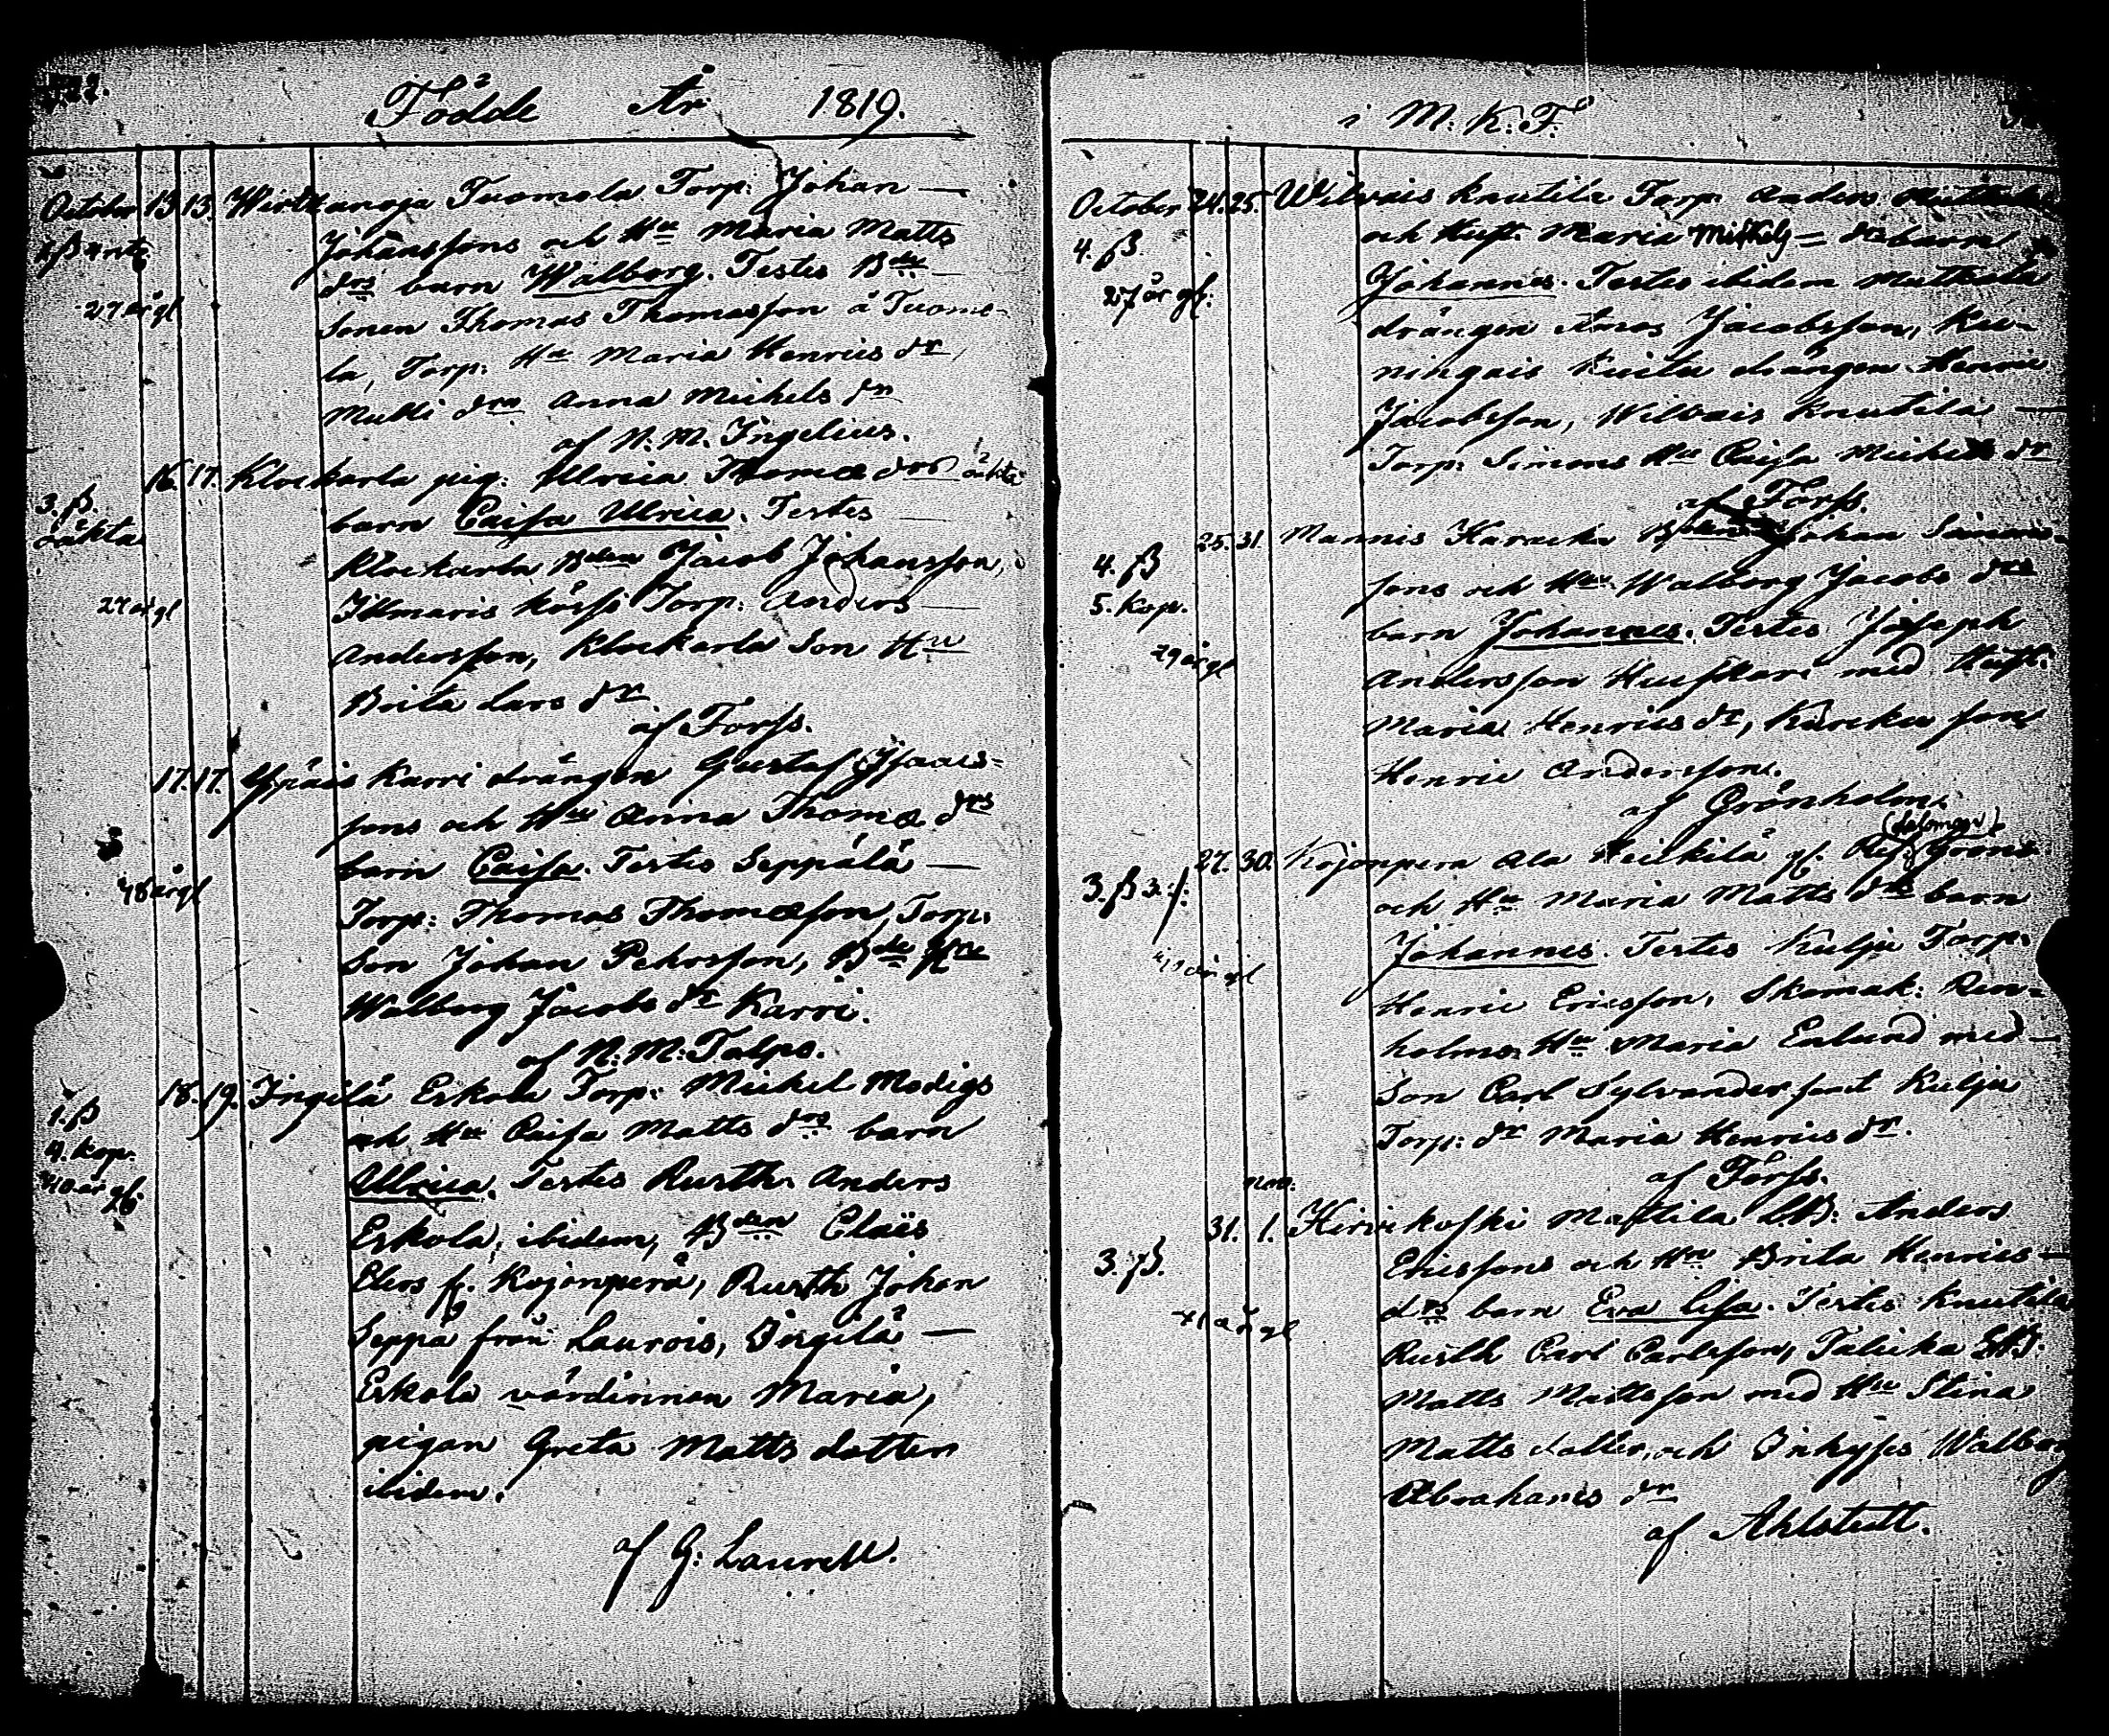 Födde År 1819.
October 13. 13. Wirtzanoja Tuomola Torp: Johan
Johanssons och Hu Maria Matts
drs barn Walborg. Testes Bde
27 år gl
Sonen Thomas Thomasson å Tuomo-
la, Torp: Hu Maria Henrics dr,
Matts drn Anna Michels dr
af N. M. Ingelius.
16. 17. Klockarla pig: Ulrica Thomæ drs oäkta
3. ß.
oäkta
barn Caisa Ulrica. Testes
Klockarla Bden Jacob Johansson,
27 år gl
Illmaris Körfs Torp: Anders
Andersson, Klockarla Son Hu
Brita Lars dr
af Forss.
17. 17. Ypäis Karri drängen Gustaf Isaacs-
sons och Hus Anna Thomæ drs
barn Caisa. Testes Seppälä
år gl
Torp: Thomas Thomæson, Torp:
Son Johan Pehrsson, Bde
Walborg Jacobs dr Karri.
af N: M: Talpo.
18. 19. Ingilä Eskola Torp: Michel Modigs
1. ß
4. kop.
40 år gl.
och Hu Caisa Matts drs barn
Ulrica. Testes Rusth. Anders
Eskola, ibidem, Bden Claës
Elers f. Kojonperä, Rusth Johan
Seppä från Laurois, Ingilä
Eskola värdinnan Maria,
pigan Greta Matts dotter
ibidem.
af G: Laurell.
i M: K: F:
October 24. 25. Wilvais Knutila Torp: Anders
4. ß.
27 år gl:
och Hust. Maria Michels = drs barn
Johannes. Testes ibidem
drängen Amos Jacobsson, Kui-
ningais drängen Henric
Jacobsson, Wilvais Knutila
Torp: Simons Hu Caisa Michels dr
af Forss.
25. 31. Mannis Karucka Johan Simons-
4. ß
5. kop.
29 år gl
sons och Hus Walborg Jacobs drs
barn Johannes. Testes Joseph
Andersson med Hust.
Maria Henrics dr, son
Henric Andersson.
af Grönholm.
27. 30. Kojonpera Ala Heickilä gl. Gröns
3. ß
år gl
och Hu Maria Matts drs barn
Johannes. Testes Kulju Torp:
Henric Ericsson, Skomak: Ren-
holms Hu Maria Enlund med
Son Carl Sylvander samt Kulju
Torp: dr Maria Henrics dr.
af Forss.
nov:
31. 1. Kirivikoski Mattila Anders
3. ß.
41 år gl
Ericssons och Hu Brita Henrics
drs barn Eva Lisa. Testes Knutila
Rusth Carl Carlsson, Talicka
Matts Mattsson med Hu Stina
Matts dotter, och Inhyses Walborg
Abrahams dr
af Ahlstedt.